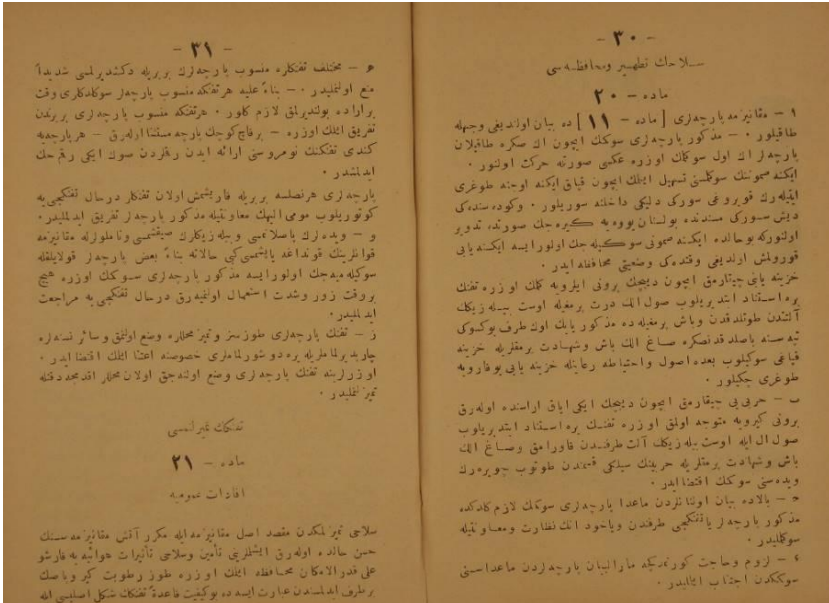 — ٣٠ —
سلاحك تطهير ومحافظه سی
ماده — ٢٠
١ — مقانیزمه پارچه‌لری [ ماده — ١١ ] ده بیان اولندیغی وجهله
طاقیلور ٠ — مذكور پارچه‌لری سوكمك ایچون اك صكره طاقیلان
پارچه‌لر اك اول سوكمك اوزره عكسی صورتله حركت اولنور ٠
ایكنه صموننك سوكلمسنی تسهیل ایتمك ایچون قپاق ایكنه اوجنه طوغری
ایتیله‌رك قویروغی سورك دلیكی داخلنه سوریلور ٠
دیش سورك مسندنده بولنان یووه‌یه كیره‌جك صورتده تدویر
اولنور كه بو حالده ایكنه صمونی سوكیله‌جك اولور ایسه ایكنه یایی
قورولمش اولدیغی وقتده‌كی وضعیتی محافظه ایدر ٠
خزینه یایی چیقارمق ایچون دیپچك برونی ایلرویه كلمك اوزره تفنك
یره استناد ایتدیریلوب صول الك درت پرمغیله اوست بیله‌زیك
آلتندن طوتلدقدن وباش پرمغیله ده مذكور یایك اوك طرف یوكسوكی
تپه سنه باصلدقدنصكره صاغ الك باش وشهادت پرمقلریله خزینه
قپاغی سوكیلوب بعده اصول واحتیاطه رعایتله خزینه یایی یوقارویه
طوغری چكیلور ٠
ب — حربی‌یی چیقارمق ایچون دیپچك ایكی ایاق اراسنده اوله‌رق
برونی كیرویه متوجه اولمق اوزره تفنك یره استناد ایتدیریلوب
صول ال ایله اوست بیله‌زیكك آلت طرفندن قاورامق وصاغ الك
باش وشهادت پرمقلریله حربینك سیلكی قسمندن طوتوب چویره‌رك
ویده‌سنی سوكمك اقتضا ایدر ٠
ج — بالاده بیان اولنانلردن ماعدا پارچه‌لری سوكمك لازم كلدكده
مذكور پارچه‌لر یا تفنكچی طرفندن ویاخود انك نظارت ومعاونتیله
سوكلملیدر ٠
د — لزوم وحاجت كورنمدكجه مارالبیان پارچه‌لردن ماعداسنی
سوكمكدن اجتناب ایتملیدر ٠
— ٣١ —
ه — مختلف تفنكلره منسوب پارچه‌لرك بربریله دكشدیرلمسی شدیداً
منع اولنملیدر ٠ — بناءً علیه هر تفنكه منسوب پارچه‌لر سوكلدكلری وقت
بر اراده بولندیرلمق لازم كلور ٠ هر تفنكه منسوب پارچه‌لری بربرندن
تفریق ایتمك اوزره — برقاچ كوچك پارچه مستثنا اوله‌رق — هر پارچه‌یه
كندی تفنكنك نومروسنی ارائه ایدن رقملردن صوك ایكی رقم حك
ایدلمشدر ٠
پارچه‌لری هر نصلسه بربریله قاریشمش اولان تفنكلر درحال تفنكچی‌یه
كوتوریلوب مومی الیهك معاونتیله مذكور پارچه‌لر تفریق ایدلملیدر ٠
و — ویده‌لرك پاصلانمسی وبیله‌زیكلرك صیقشمسی وناملولرله مقانیزمه
قوانلرینك قونداغه یاپشمسی كبی حالاته بناءً بعض پارچه‌لر قولایلقله
سوكیله‌میه‌جك اولور ایسه مذكور پارچه‌لری سوكمك اوزره هیچ
بر وقت زور وشدت استعمال اولنمیه‌رق درحال تفنكچی‌یه مراجعت
ایدلملیدر ٠
ز — تفنك پارچه‌لری طوزسز وتمیز محللره وضع اولنمق وسائر نسنه‌لره
چارپدیرلماملریله یره دوشورلماملری خصوصنه اعتنا ایتمك اقتضا ایدر ٠
اوزرلرینه تفنك پارچه‌لری وضع اولنه‌جق اولان محللر اقدمجه دقتله
تمیزلنملیدر ٠
تفنكك تمیزلنمسی
ماده — ٢١
افادات عمومیه
سلاحی تمیزلمكدن مقصد اصل مقانیزمه ایله مكرر آتش مقانیزمه سنك
حسن حالده اوله‌رق ایشلملرینی تأمین وسلاحی تأثیرات هوائیه‌یه قارشو
علی قدر الامكان محافظه ایتمك اوزره طوز رطوبت كیر وپاصك
بر طرف ایدلمسندن عبارت ایسه ده بو كیفیت قاعدةً تفنكك شكل اصلیسی ایله